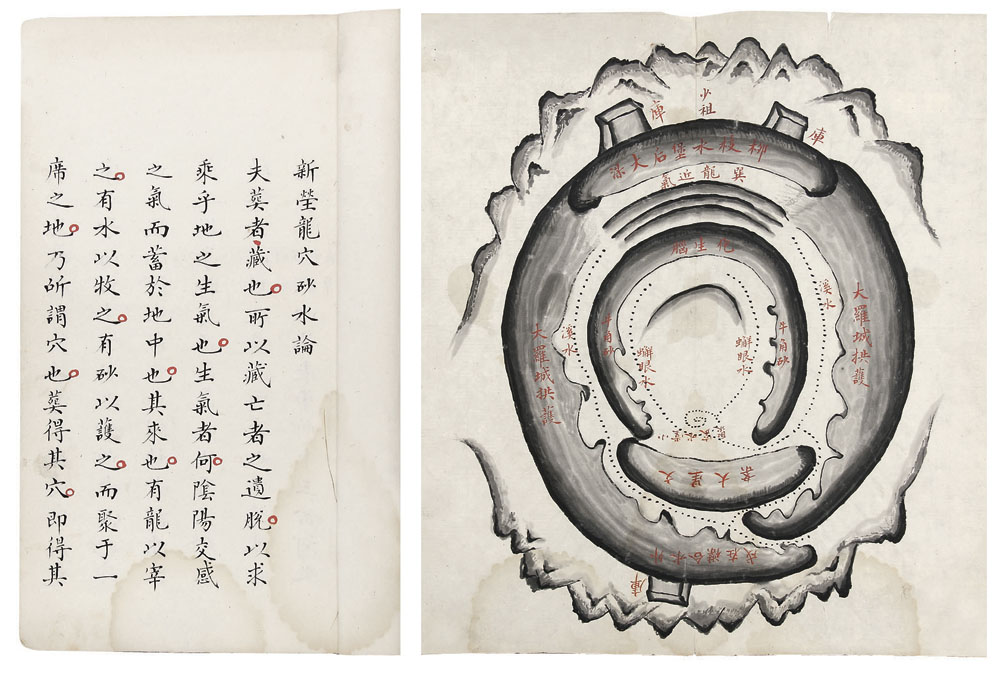 新塋龍穴砂水論
夫葬者藏也所以藏亡者之遺脫以求
乘乎地之生氣也生氣者何陰陽交感
之氣而蓄於地中也其來也有龍以宰
之有水以牧之有砂以護之而聚于一
席之地乃所謂穴也葬得其穴即得其
少祖
庫
庫
柳枝水堡后大
巽龍近氣
化生腦
溪水
大羅城拱護
牛角砂
蠏眼水
蠏眼水
牛角砂
溪水
大羅城拱護
文星大案
外水合襟在戌
庫